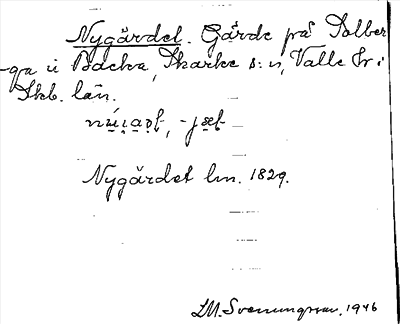 Nygärdet. Gärde på Solber-
-ga i Backa, Skarke s:n, Valle hr i
Skb. län.
Nygärdet lm. 1829.
LM. Svenungsson. 1946